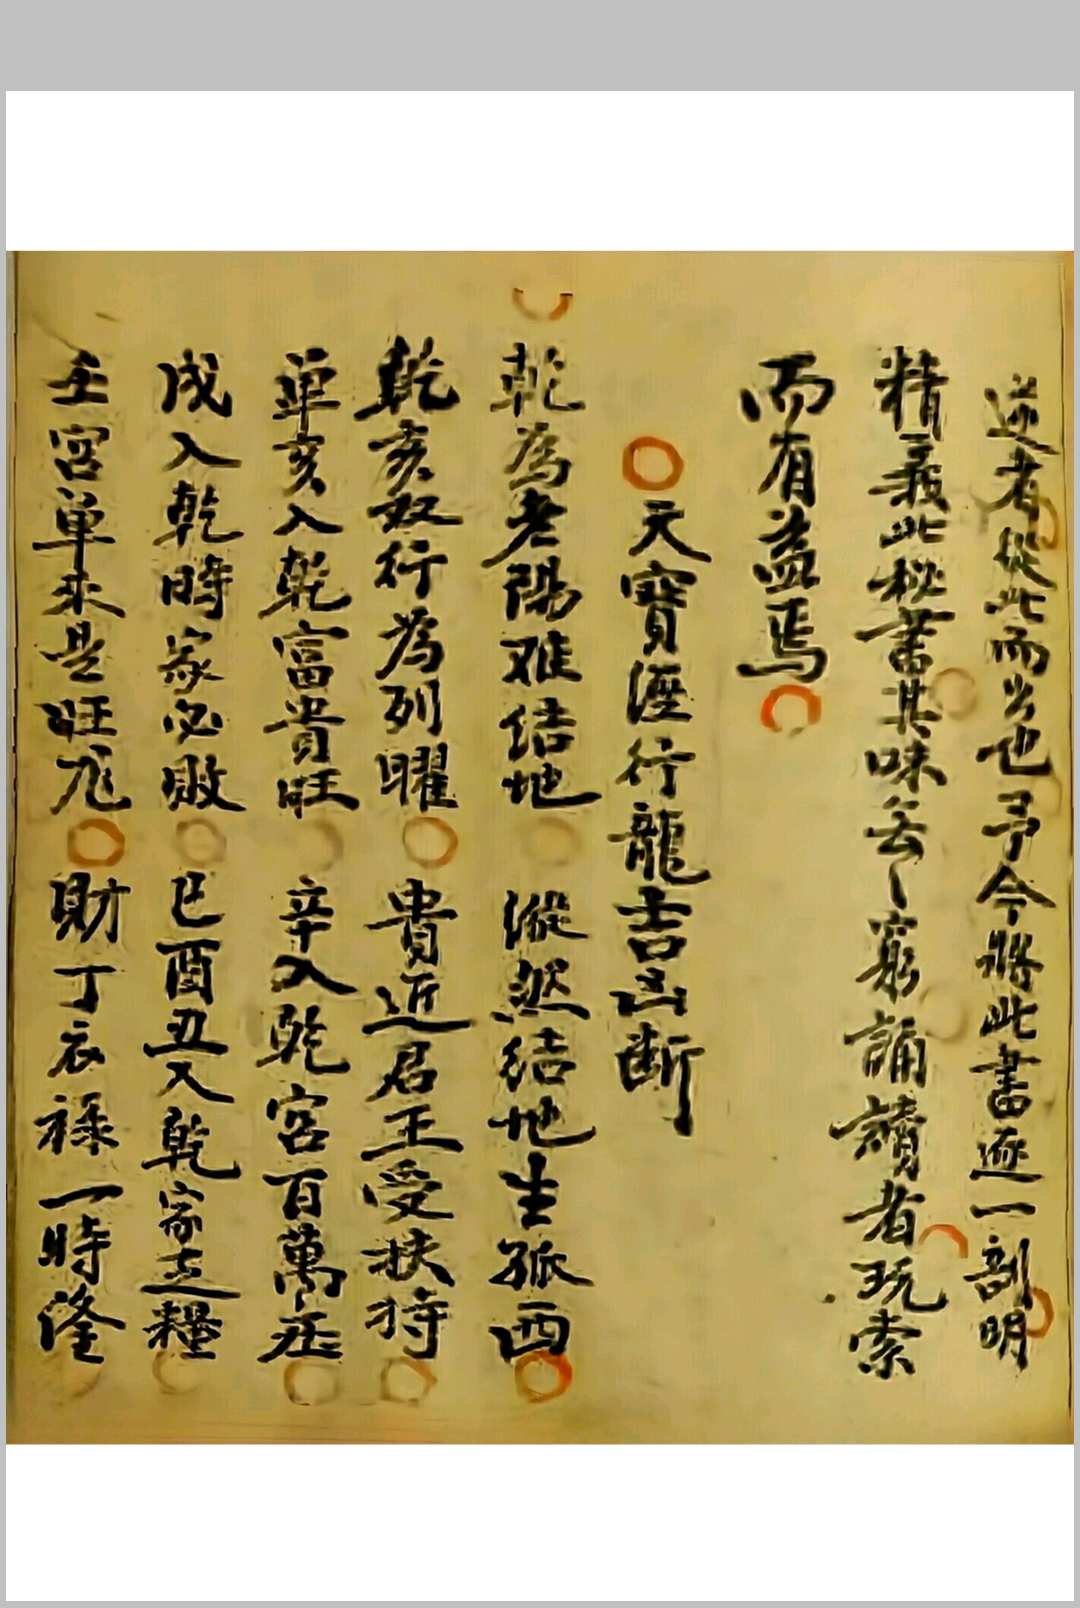 逆者從此而出也予今將此書逐一剖明
精義此秘書其味無窮誦讀者玩索
而有益焉
天寶經行龍吉凶断
乾為老陽难结地 縱然结地生孤西
乾亥双行為列曜 貴近君王受扶持
单亥入乾富貴旺 辛入乾宫百萬庄
戌入乾時家必敗 巳酉丑入乾家立糧
壬宫单来是旺龙 財丁衣禄一時隆